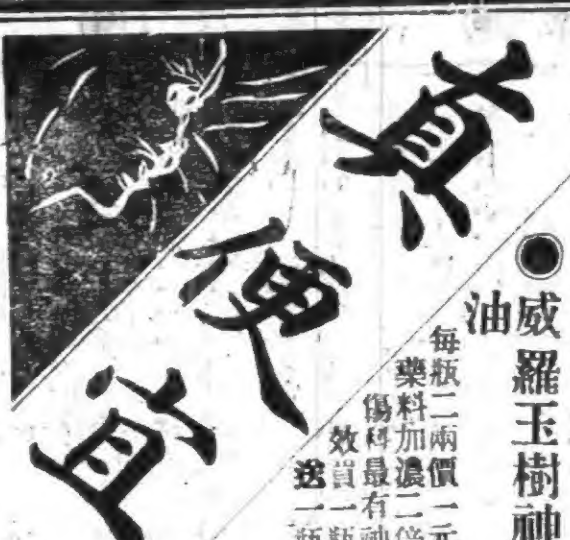 真便宜
●威羅玉樹神
油
每瓶二兩價一元
藥料加濃二倍
傷科最有神
效買一瓶
送一瓶